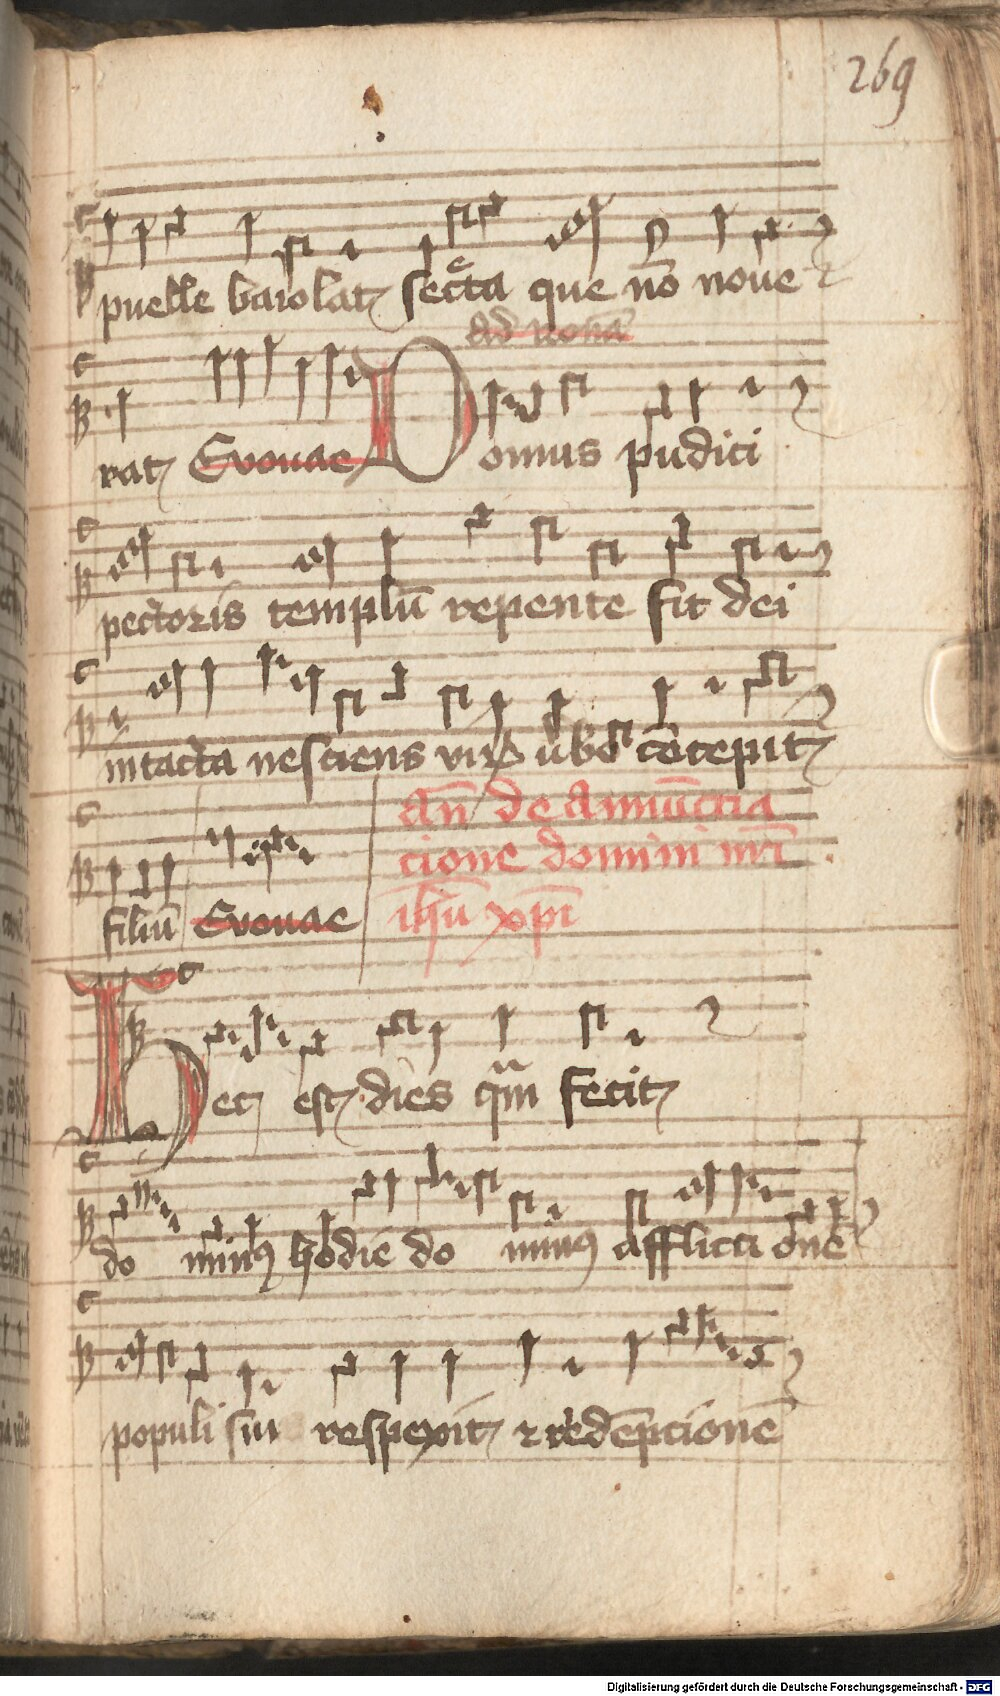 269
puelle baiolat secta que nō noue
ad nonā
rat Evouae Domus pudici
pectoris templū repente fit dei
intacta nesciens virū ūbo cōcepit
filiū Evouae
an̄ de Annūccia
cione domini nr̄i
ihū xp̄i
Hec est dies quā fecit
do minus hodie do minus afflicti onē
populi sui respexit et redēpcionē
Digitalisierung gefördert durch die Deutsche Forschungsgemeinschaft - DFG